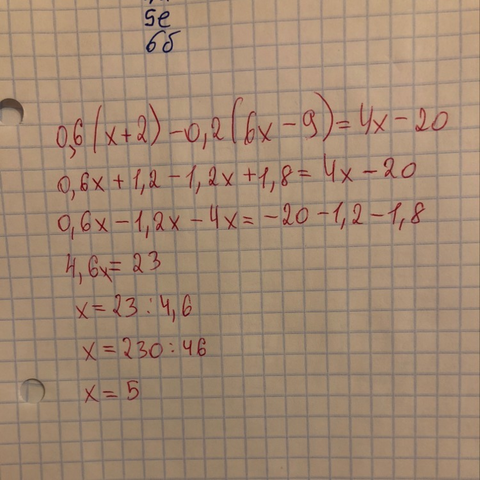 5е
6б
0,6(x+2)-0,2(6x-9)=4x-20
0,6x+1,2-1,2x+1,8=4x-20
0,6x-1,2x-4x=-20-1,2-1,8
4,6x=23
x=23:4,6
x=230:46
x=5